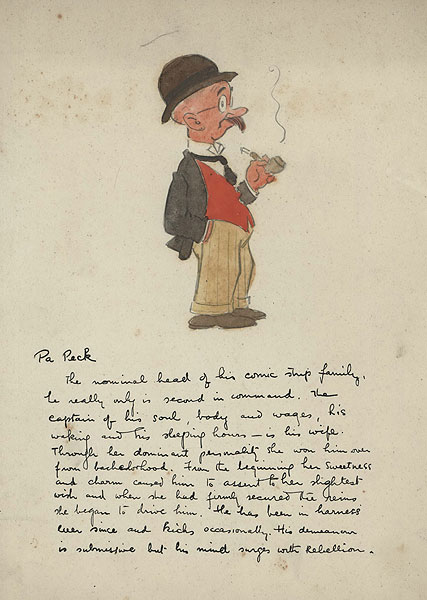 Pa Peck
The nominal head of his comic strip family,
he really only is second in command. The
captain of his soul, body and wages, his
waking and his sleeping hours — is his wife.
Through her dominant personality she won him over
from bachelorhood. From the beginning her sweetness
and charm caused him to assent to her slightest
wish and when she had firmly secured the reins
she began to drive him. He has been in harness
ever since and kicks occasionally. His demeanor
is submissive but his mind surges with Rebellion.